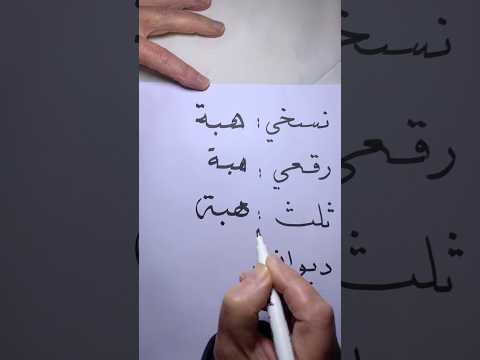 نسخي : هبة
رقعي : هبة
ثلث : هبة